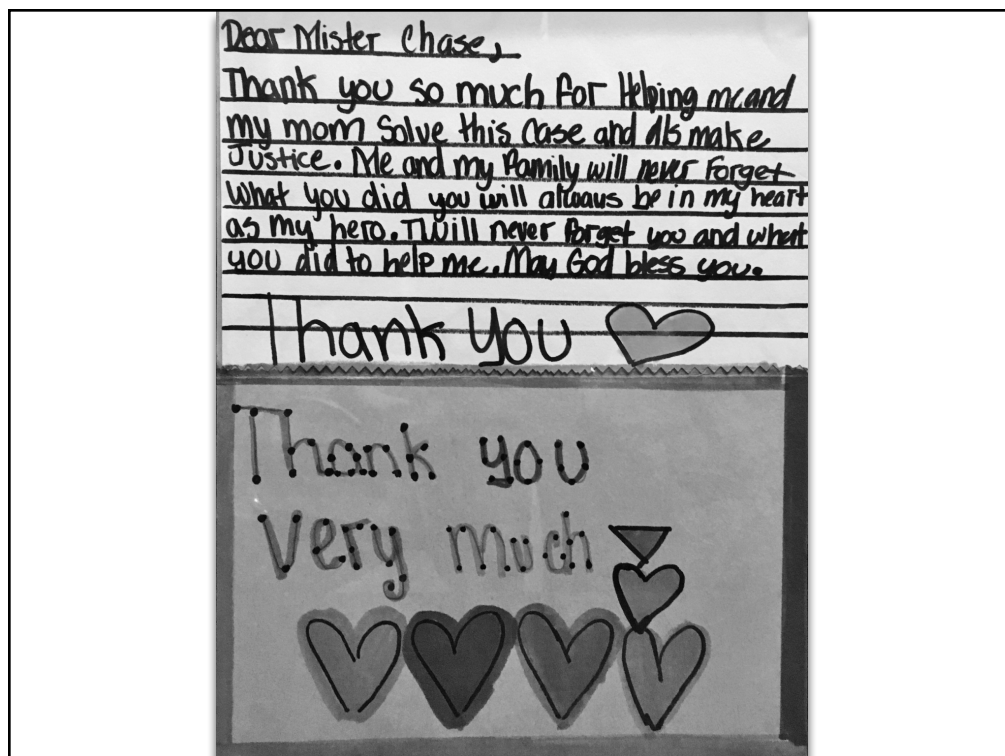 Dear Mister Chase,
Thank you so much for Helping me and
my mom Solve this case and als make
Justice. Me and my Family will never Forget
What you did you will always be in my heart
as my hero. I Will never forget you and what
you did to help me. May God bless you.
Thank you
Thank you
very much